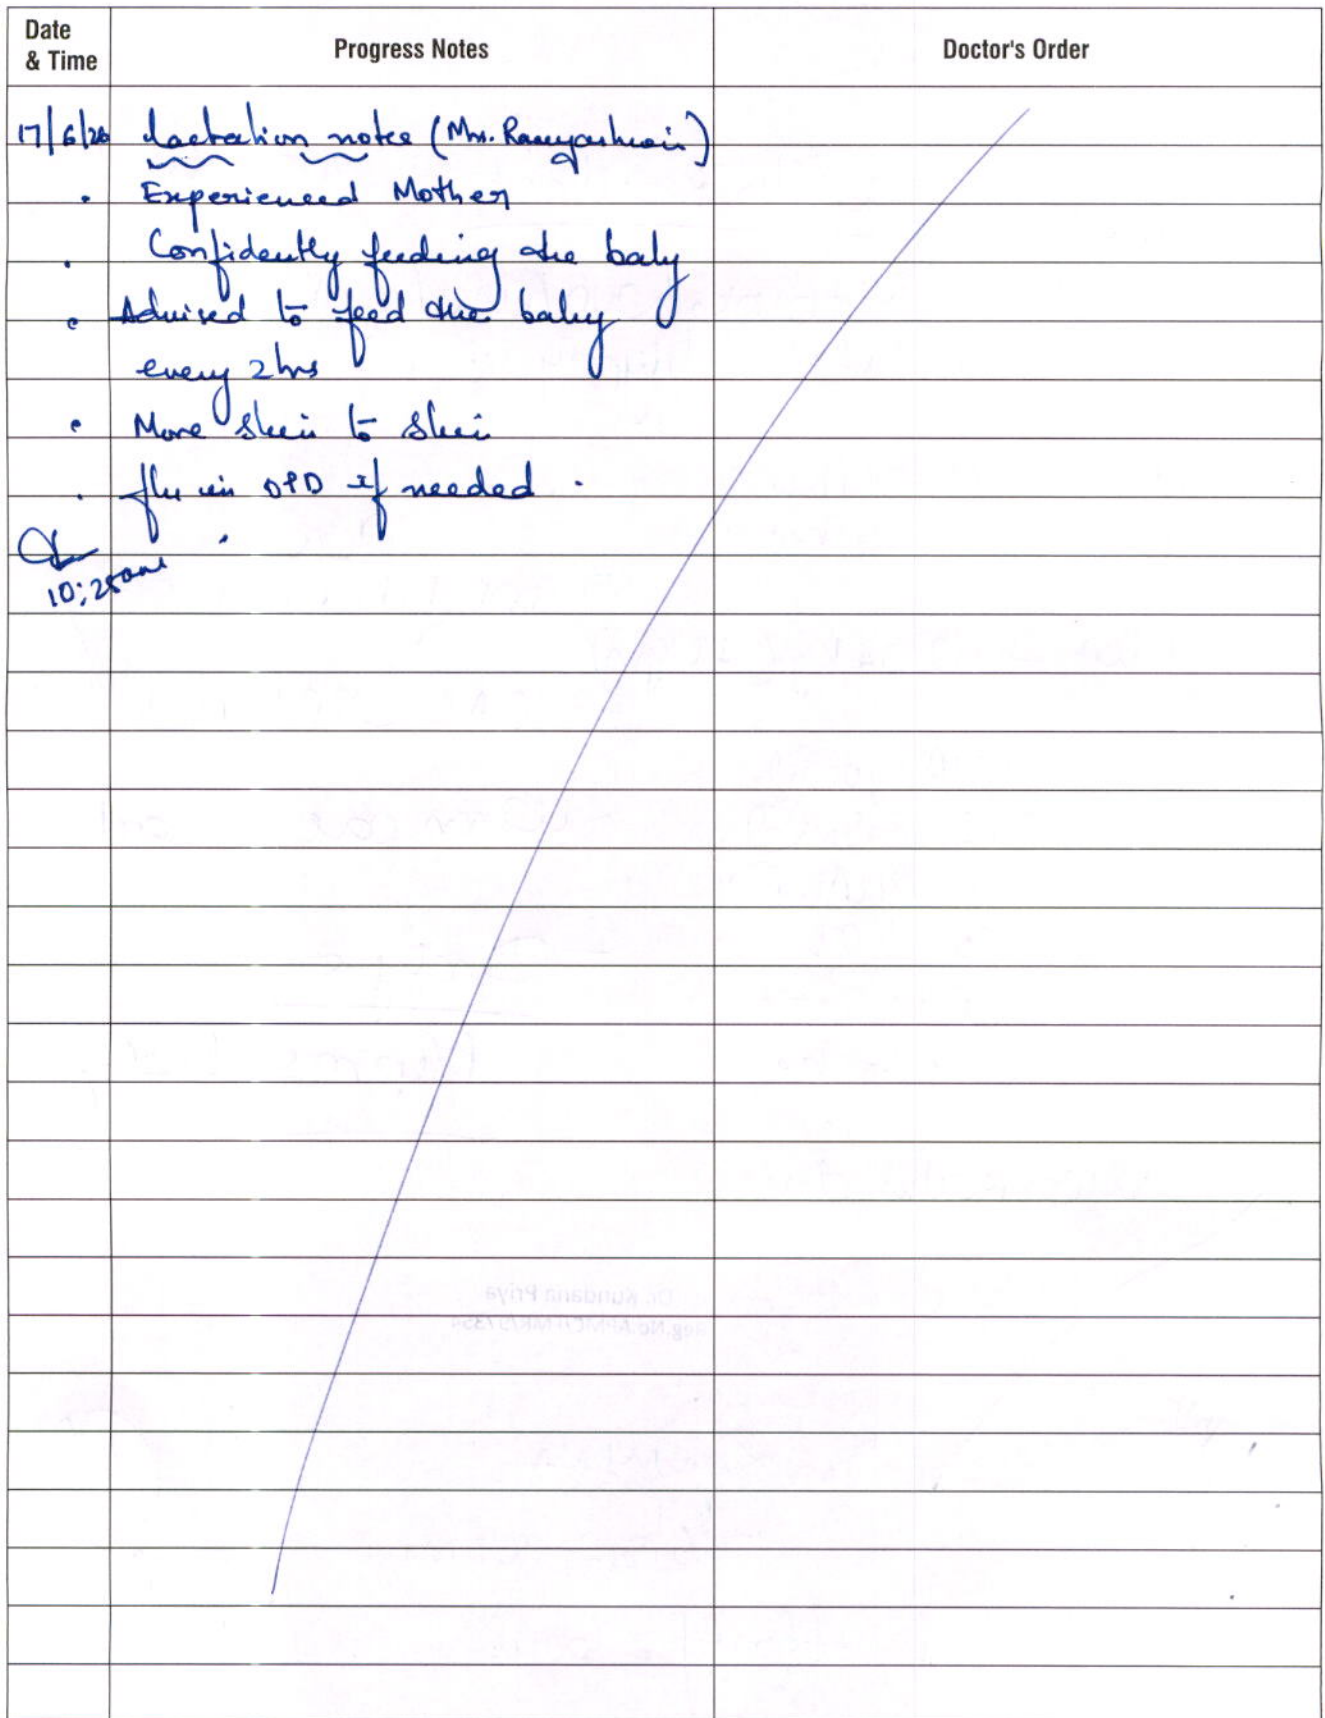 Date
& Time
Progress Notes
Doctor's Order
17/6/26 Lactation notes (Mrs.
• Experienced Mother
• Confidently feeding the baby
• Advised to feed the baby
every 2 hrs
• More skin to skin
• f/u in OPD if needed.
10:25am
Dr. Kundana Priya